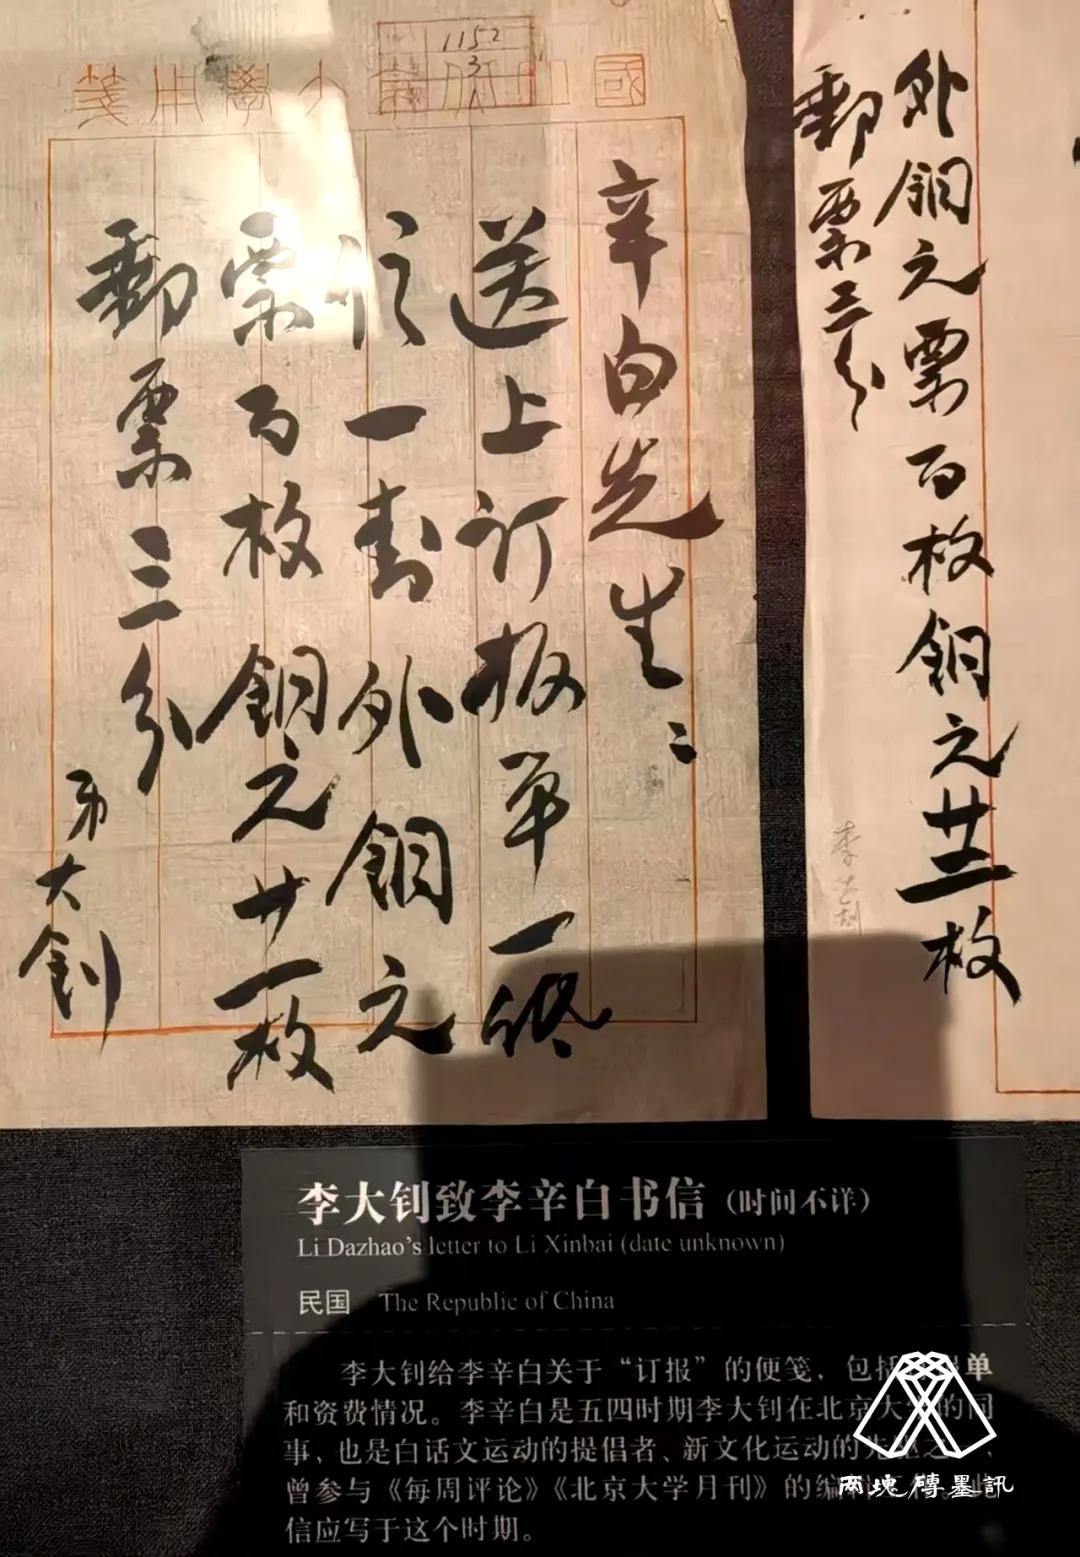 1152
3
國立大學用箋
辛白先生：
送上订报单一纸
信一封外銅元
票百枚銅元廿一枚
郵票三分
弟大釗
外銅元票百枚銅元廿二枚
郵票三分
李大钊致李辛白书信（时间不详）
Li Dazhao's letter to Li Xinbai (date unknown)
民国 The Republic of China
李大钊给李辛白关于“订报”的便笺，包括单
和资费情况。李辛白是五四时期李大钊在北京大学的同
事，也是白话文运动的提倡者、新文化运动的先驱之一，
曾参与《每周评论》《北京大学月刊》的编工作。此
信应写于这个时期。
两塊磚墨訊